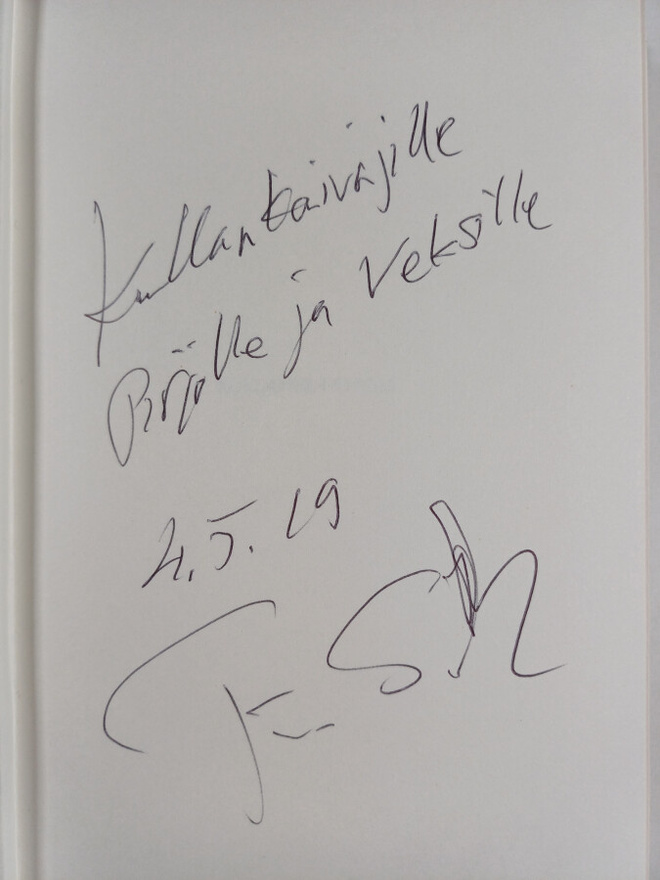 Kullankaivajille
Pirjolle ja Veksille
4.5.19